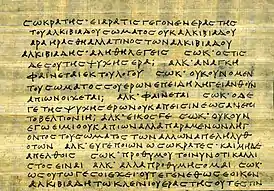 ϹΩΚΡΑΤΗϹ ΕΙ ΑΡΑ ΤΙϹ ΓΕΓΟΝΕΝ ΕΡΑϹΤΗϹ
ΤΟΥ ΑΛΚΙΒΙΑΔΟΥ ϹΩΜΑΤΟϹ ΟΥΚ ΑΛΚΙΒΙΑΔΟΥ
ΑΡΑ ΗΡΑϹΘΗ ΑΛΛΑ ΤΙΝΟϹ ΤΩΝ ΑΛΚΙΒΙΑΔΟΥ
ΑΛΚΙΒΙΑΔΗϹ ΑΛΗΘΗ ΛΕΓΕΙϹ ϹΩΚ ΟϹΤΙϹ
ΔΕ ϹΟΥ ΤΗϹ ΨΥΧΗϹ ΕΡΑΙ ΑΛΚ ΑΝΑΓΚΗ
ΦΑΙΝΕΤΑΙ ΕΚ ΤΟΥ ΛΟΓΟΥ ϹΩΚ ΟΥΚΟΥΝ Ο ΜΕΝ
ΤΟΥ ϹΩΜΑΤΟϹ ϹΟΥ ΕΡΩΝ ΕΠΕΙΔΗ ΛΗΓΕΙ ΑΝΘΟΥΝ
ΑΠΙΩΝ ΟΙΧΕΤΑΙ ΑΛΚ ΦΑΙΝΕΤΑΙ ϹΩΚ Ο ΔΕ
ΓΕ ΤΗϹ ΨΥΧΗϹ ΕΡΩΝ ΟΥΚ ΑΠΕΙϹΙΝ ΕΩϹ ΑΝ ΙΗΙ Ε
ΠΙ ΤΟ ΒΕΛΤΙΟΝ ΑΛΚ ΕΙΚΟϹ ΓΕ ϹΩΚ ΟΥΚΟΥΝ
ΕΓΩ ΕΙΜΙ Ο ΟΥΚ ΑΠΙΩΝ ΑΛΛΑ ΠΑΡΑΜΕΝΩΝ ΛΗΓ
ΟΝΤΟϹ ΤΟΥ ϹΩΜΑΤΟϹ ΤΩΝ ΑΛΛΩΝ ΑΠΕΛΗΛΥΘ
ΟΤΩΝ ΑΛΚ ΕΥ ΓΕ ΠΟΙΩΝ Ω ϹΩΚΡΑΤΕϹ ΚΑΙ ΜΗ
ΑΠΕΛΘΟΙϹ ϹΩΚ ΠΡΟΘΥΜΟΥ ΤΟΙΝΥΝ ΟΤΙ ΚΑΛΛΙ
ϹΤΟϹ ΕΙΝΑΙ ΑΛΚ ΑΛΛΑ ΠΡΟΘΥΜΗϹΟΜΑΙ ϹΩΚ
ΩϹ ΟΥΤΩ ΓΕ ϹΟΙ ΕΧΕΙ ΟΥΤ ΕΓΕΝΕΘ ΩϹ ΕΟΙΚΕΝ
ΑΛΚΙΒΙΑΔΗΙ ΤΩΙ ΚΛΕΙΝΙΟΥ ΕΡΑϹΤΗϹ ΟΥΤ ΕϹΤΙΝ